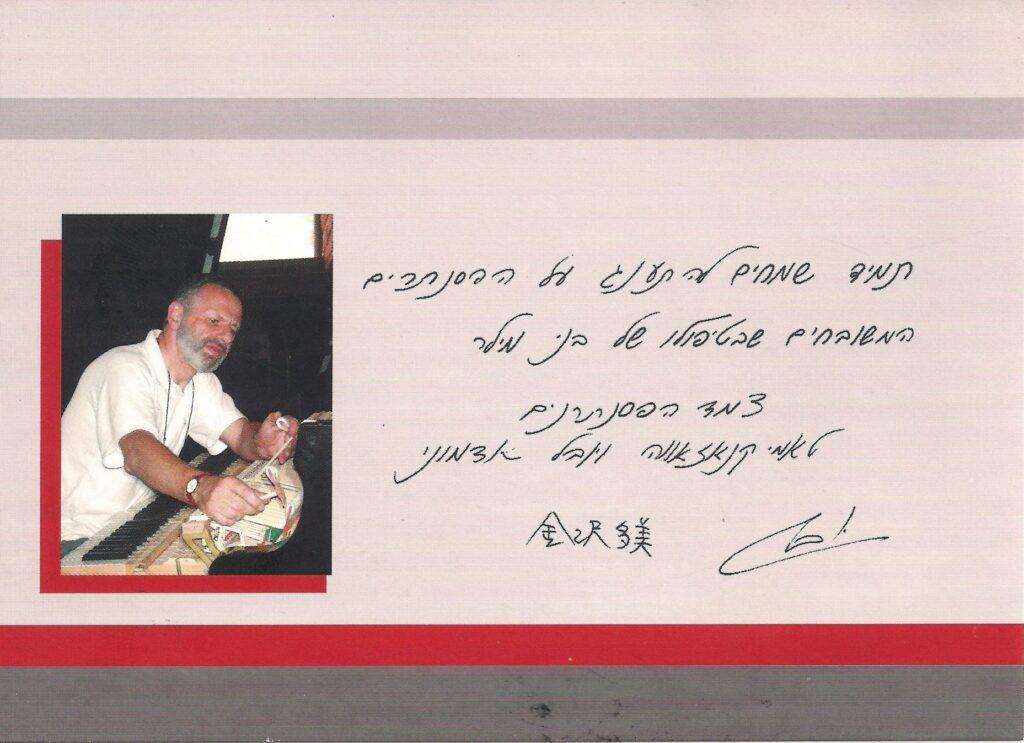 תמיד שמחים להתענג על הפסנתרים
המשובחים שבטיפולו של בני מילר
צמד הפסנתרנים
טאמי קנאזאווה ויובל אדמוני
金沢多美